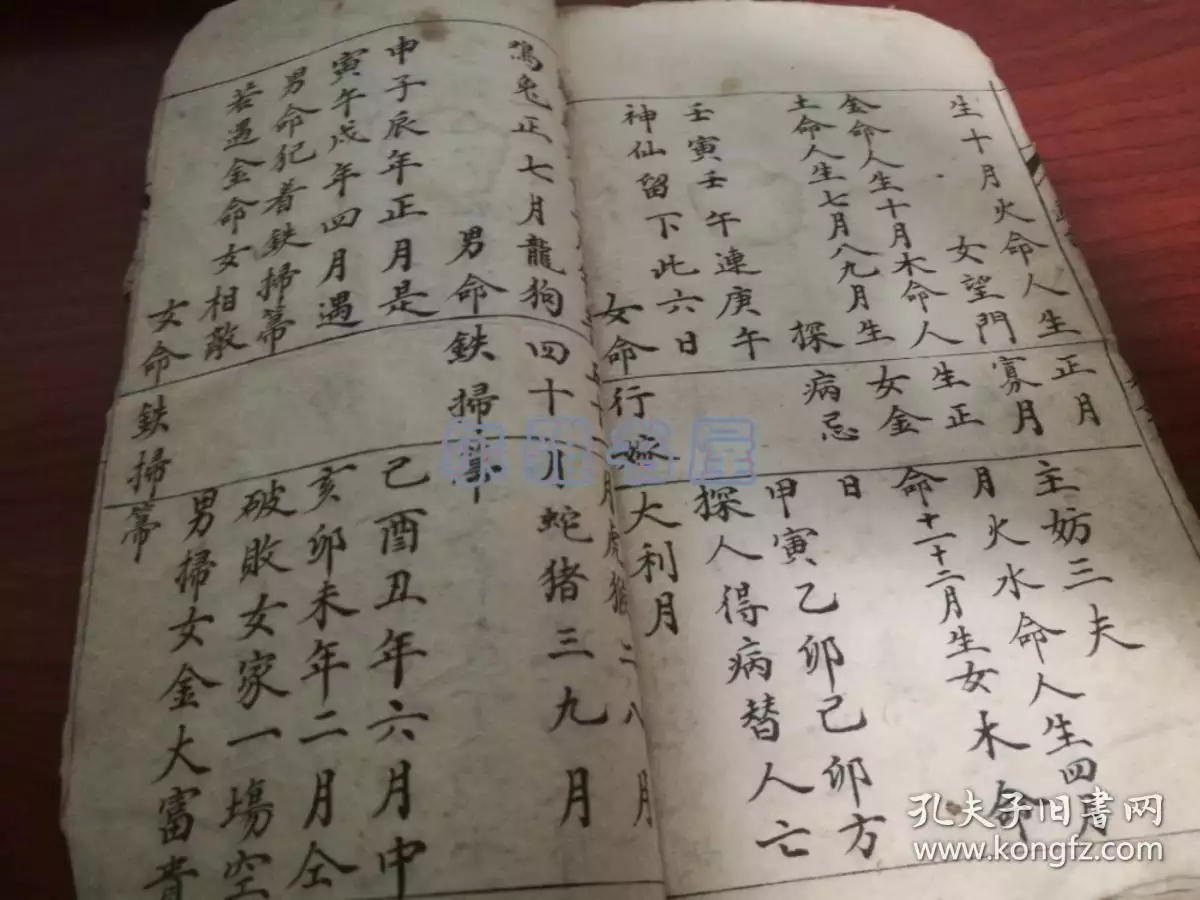 生十月火命人生正月主妨三夫
女望門寡
金命人生十月木命人生正月火水命人生四月
土命人生七月八九月生女金命十一十二月生女木命
探病忌日
壬寅壬午連庚午 甲寅乙卯己卯方
神仙留下此六日 探人得病替人亡
女命行嫁大利月
月虎猴二八月
鳮兔正七月龍狗四十月蛇猪三九月
男命鉄掃箒
申子辰年正月是 己酉丑年六月中
寅午戌年四月遇 亥卯未年二月仝
男命犯着鉄掃箒 破敗女家一塲空
若遇金命女相敵 男掃女金大富貴
女命鉄掃箒
孔夫子旧书网
www.kongfz.com